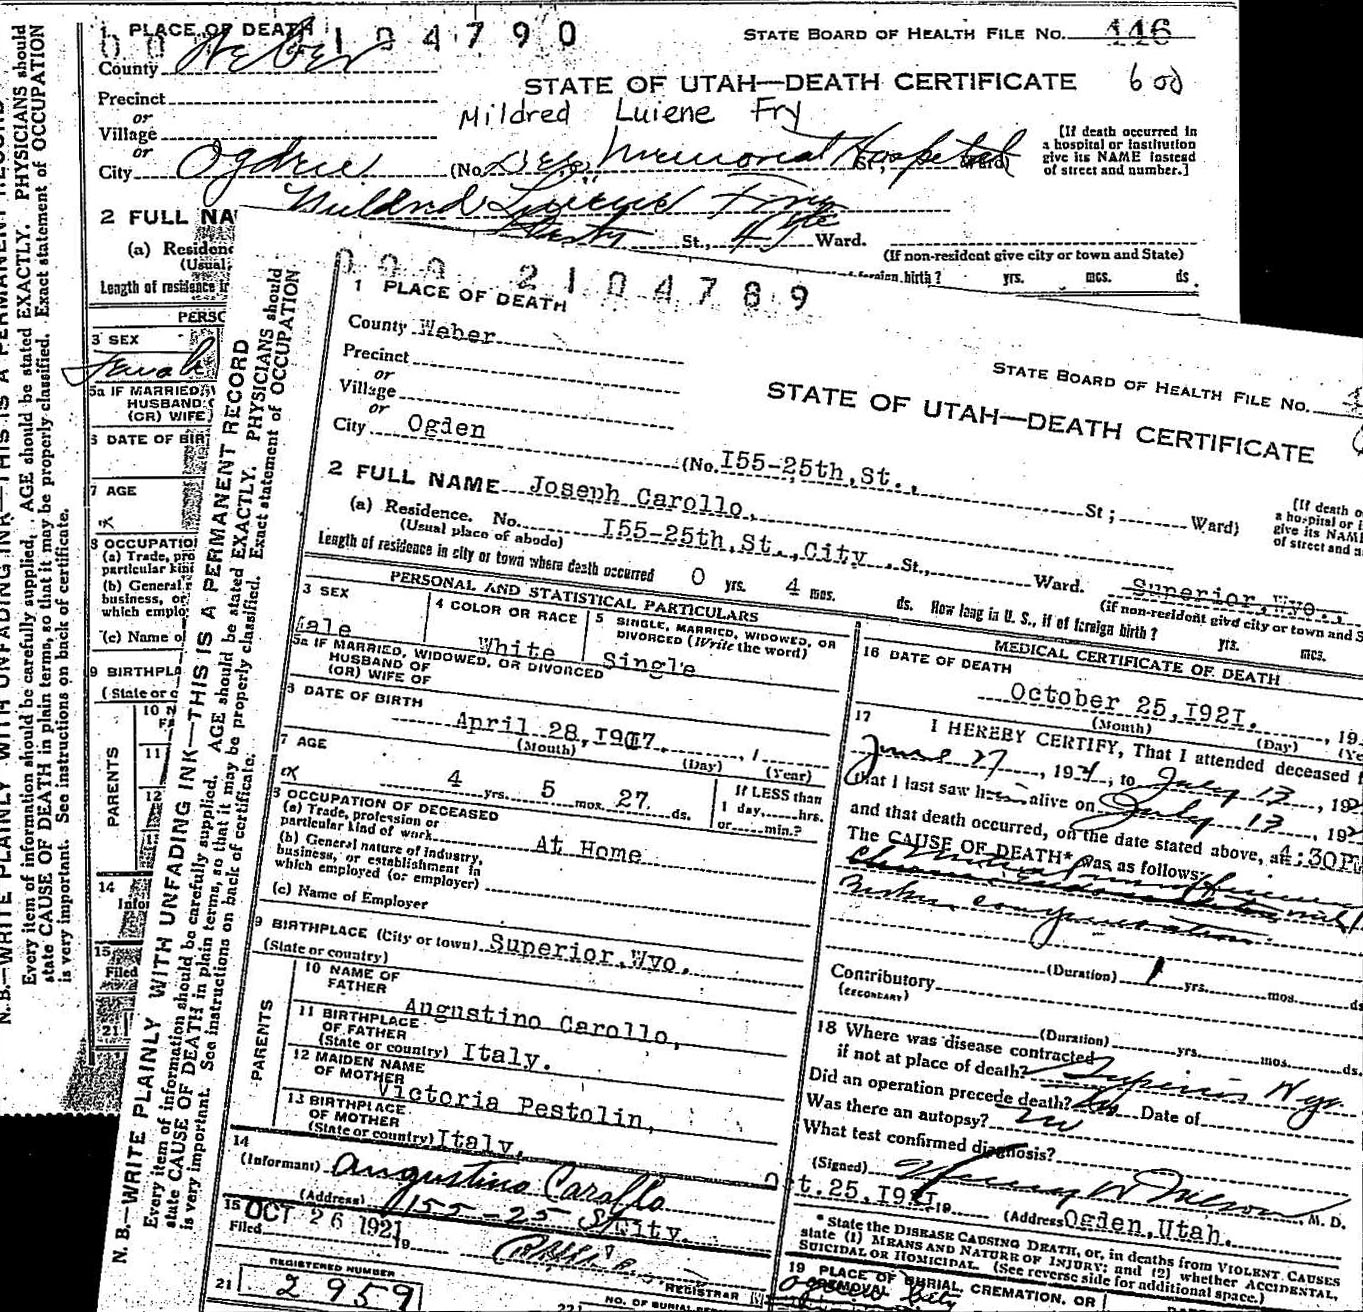 1 PLACE OF DEATH
104790
STATE BOARD OF HEALTH FILE No. 446
County Weber
STATE OF UTAH—DEATH CERTIFICATE 600
Precinct
Mildred Luiene Fry
or
Village
or
City Ogden (No. Dee Memorial Hospital St.; Ward)
[If death occurred in
a hospital or institution
give its NAME instead
of street and number.]
2 FULL NA Mildred Luiene Fry
(a) Residenc St., Ward.
(Usual (If non-resident give city or town and State)
Length of residence foreign birth? yrs. mos. ds.
PERSO
3 SEX
Female
5a IF MARRIED
HUSBAND
(OR) WIFE
6 DATE OF BIR
7 AGE
8 OCCUPATIO
(a) Trade, pro
particular kin
(b) General
business, or
which emplo
(c) Name o
9 BIRTHPLA
(State or c
10 N
11
12
PARENTS
14
Info
15
Filed
21
N. B.—WRITE PLAINLY WITH UNFADING INK—THIS IS A PERMANENT RECORD
Every item of information should be carefully supplied. AGE should be stated EXACTLY. PHYSICIANS should
state CAUSE OF DEATH in plain terms, so that it may be properly classified. Exact statement of OCCUPATION
is very important. See instructions on back of certificate.
000 2104789
1 PLACE OF DEATH
County Weber
STATE BOARD OF HEALTH FILE No.
Precinct
or
Village
STATE OF UTAH—DEATH CERTIFICATE
or
City Ogden (No. I55-25th,St., St; Ward)
[If death o
a hospital or i
give its NAME
of street and n
2 FULL NAME Joseph Carollo,
(a) Residence. No. I55-25th,St.,City. St., Ward. Superior,Wyo.,
(Usual place of abode) (if non-resident give city or town and S
Length of residence in city or town where death occurred 0 yrs. 4 mos. ds. How long in U. S., if of foreign birth? yrs. mos.
PERSONAL AND STATISTICAL PARTICULARS
3 SEX
Male
4 COLOR OR RACE
White
5 SINGLE, MARRIED, WIDOWED, OR
DIVORCED (Write the word)
Single
5a IF MARRIED, WIDOWED, OR DIVORCED
HUSBAND OF
(OR) WIFE OF
6 DATE OF BIRTH
April 28,I917.
(Month) (Day) (Year)
7 AGE
4 yrs. 5 mos. 27 ds.
If LESS than
1 day, hrs.
or min.?
8 OCCUPATION OF DECEASED
(a) Trade, profession or
particular kind of work At Home
(b) General nature of industry,
business, or establishment in
which employed (or employer)
(c) Name of Employer
9 BIRTHPLACE (City or town) Superior,Wyo.
(State or country)
PARENTS
10 NAME OF
FATHER Augustino Carollo,
11 BIRTHPLACE
OF FATHER
(State or country) Italy.
12 MAIDEN NAME
OF MOTHER Victoria Pestolin,
13 BIRTHPLACE
OF MOTHER
(State or country) Italy,
14
(Informant) Angustino Carollo
(Address) 155-25 St City.
15 OCT 26 1921
Filed 19
REGISTRAR
21 REGISTERED NUMBER
2959
NO. OF BURIAL PER
MEDICAL CERTIFICATE OF DEATH
16 DATE OF DEATH
October 25,I92I. 19
(Month) (Day) (Ye
17 I HEREBY CERTIFY, That I attended deceased f
June 27, 1921, to July 13, 192
that I last saw him alive on July 13, 192
and that death occurred, on the date stated above, at 4:30P
The CAUSE OF DEATH* was as follows:
(Duration) 1 yrs. mos. ds
Contributory
(SECONDARY)
(Duration) yrs. mos. ds.
18 Where was disease contracted
if not at place of death? Superior Wyo
Did an operation precede death? No Date of
Was there an autopsy? No
What test confirmed diagnosis?
(Signed) M. D.
t.25,I92I. 19 (Address Ogden,Utah.
* State the DISEASE CAUSING DEATH, or, in deaths from VIOLENT CAUSES
state (1) MEANS AND NATURE OF INJURY; and (2) whether ACCIDENTAL,
SUICIDAL OR HOMICIDAL. (See reverse side for additional space.)
19 PLACE OF BURIAL, CREMATION, OR
REMOVAL Ogden City
N. B.—WRITE PLAINLY WITH UNFADING INK—THIS IS A PERMANENT RECORD
Every item of information should be carefully supplied. AGE should be stated EXACTLY. PHYSICIANS should
state CAUSE OF DEATH in plain terms, so that it may be properly classified. Exact statement of OCCUPATION
is very important. See instructions on back of certificate.